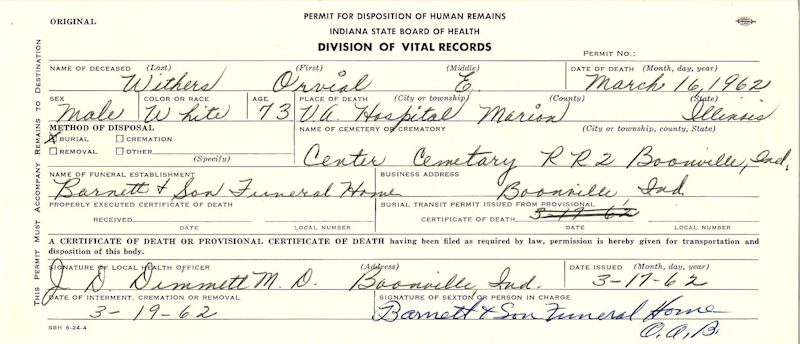 ORIGINAL
PERMIT FOR DISPOSITION OF HUMAN REMAINS
INDIANA STATE BOARD OF HEALTH
DIVISION OF VITAL RECORDS
PERMIT NO.:
THIS PERMIT MUST ACCOMPANY REMAINS TO DESTINATION
NAME OF DECEASED (Last) (First) (Middle) DATE OF DEATH (Month, day, year)
Withers Orvial E. March 16, 1962
SEX COLOR OR RACE AGE PLACE OF DEATH (City or township) (County) (State)
Male White 73 VA. Hospital Marion Illinois
METHOD OF DISPOSAL NAME OF CEMETERY OR CREMATORY (City or township, county, State)
X BURIAL CREMATION
REMOVAL OTHER
(Specify)
Center Cemetary RR2 Boonville, Ind.
NAME OF FUNERAL ESTABLISHMENT BUSINESS ADDRESS
Barnett & Son Funeral Home Boonville, Ind
PROPERLY EXECUTED CERTIFICATE OF DEATH BURIAL TRANSIT PERMIT ISSUED FROM PROVISIONAL
RECEIVED CERTIFICATE OF DEATH 3-19-62
DATE LOCAL NUMBER DATE LOCAL NUMBER
A CERTIFICATE OF DEATH OR PROVISIONAL CERTIFICATE OF DEATH having been filed as required by law, permission is hereby given for transportation and
disposition of this body.
SIGNATURE OF LOCAL HEALTH OFFICER (Address) DATE ISSUED (Month, day, year)
J. D. Dimmett M.D. Boonville, Ind. 3-17-62
DATE OF INTERMENT, CREMATION OR REMOVAL SIGNATURE OF SEXTON OR PERSON IN CHARGE
3-19-62 Barnett & Son Funeral Home
O.A.B.
SBH 6-24-4